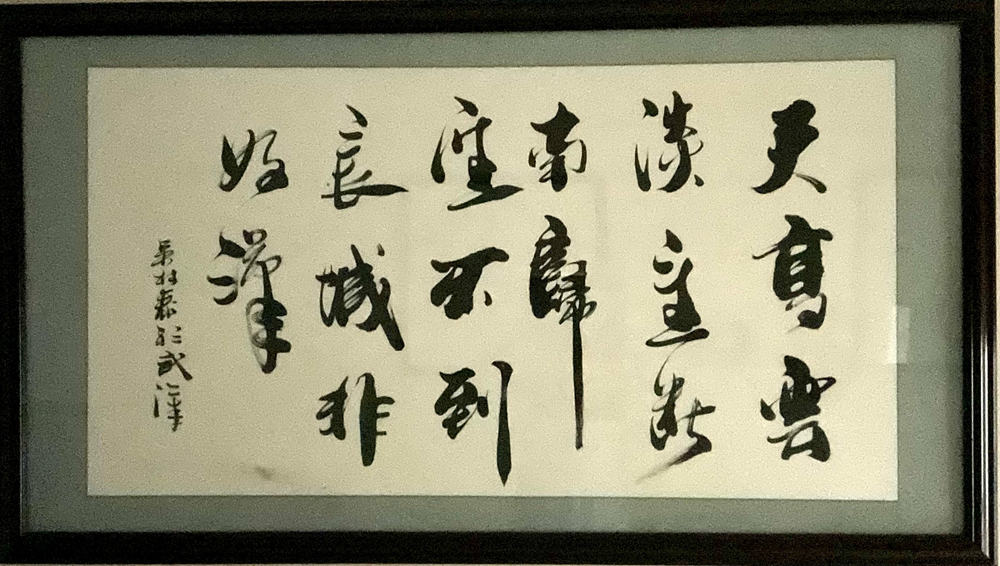 天高雲
淡望斷
南歸
雁不到
長城非
好漢
於武漢